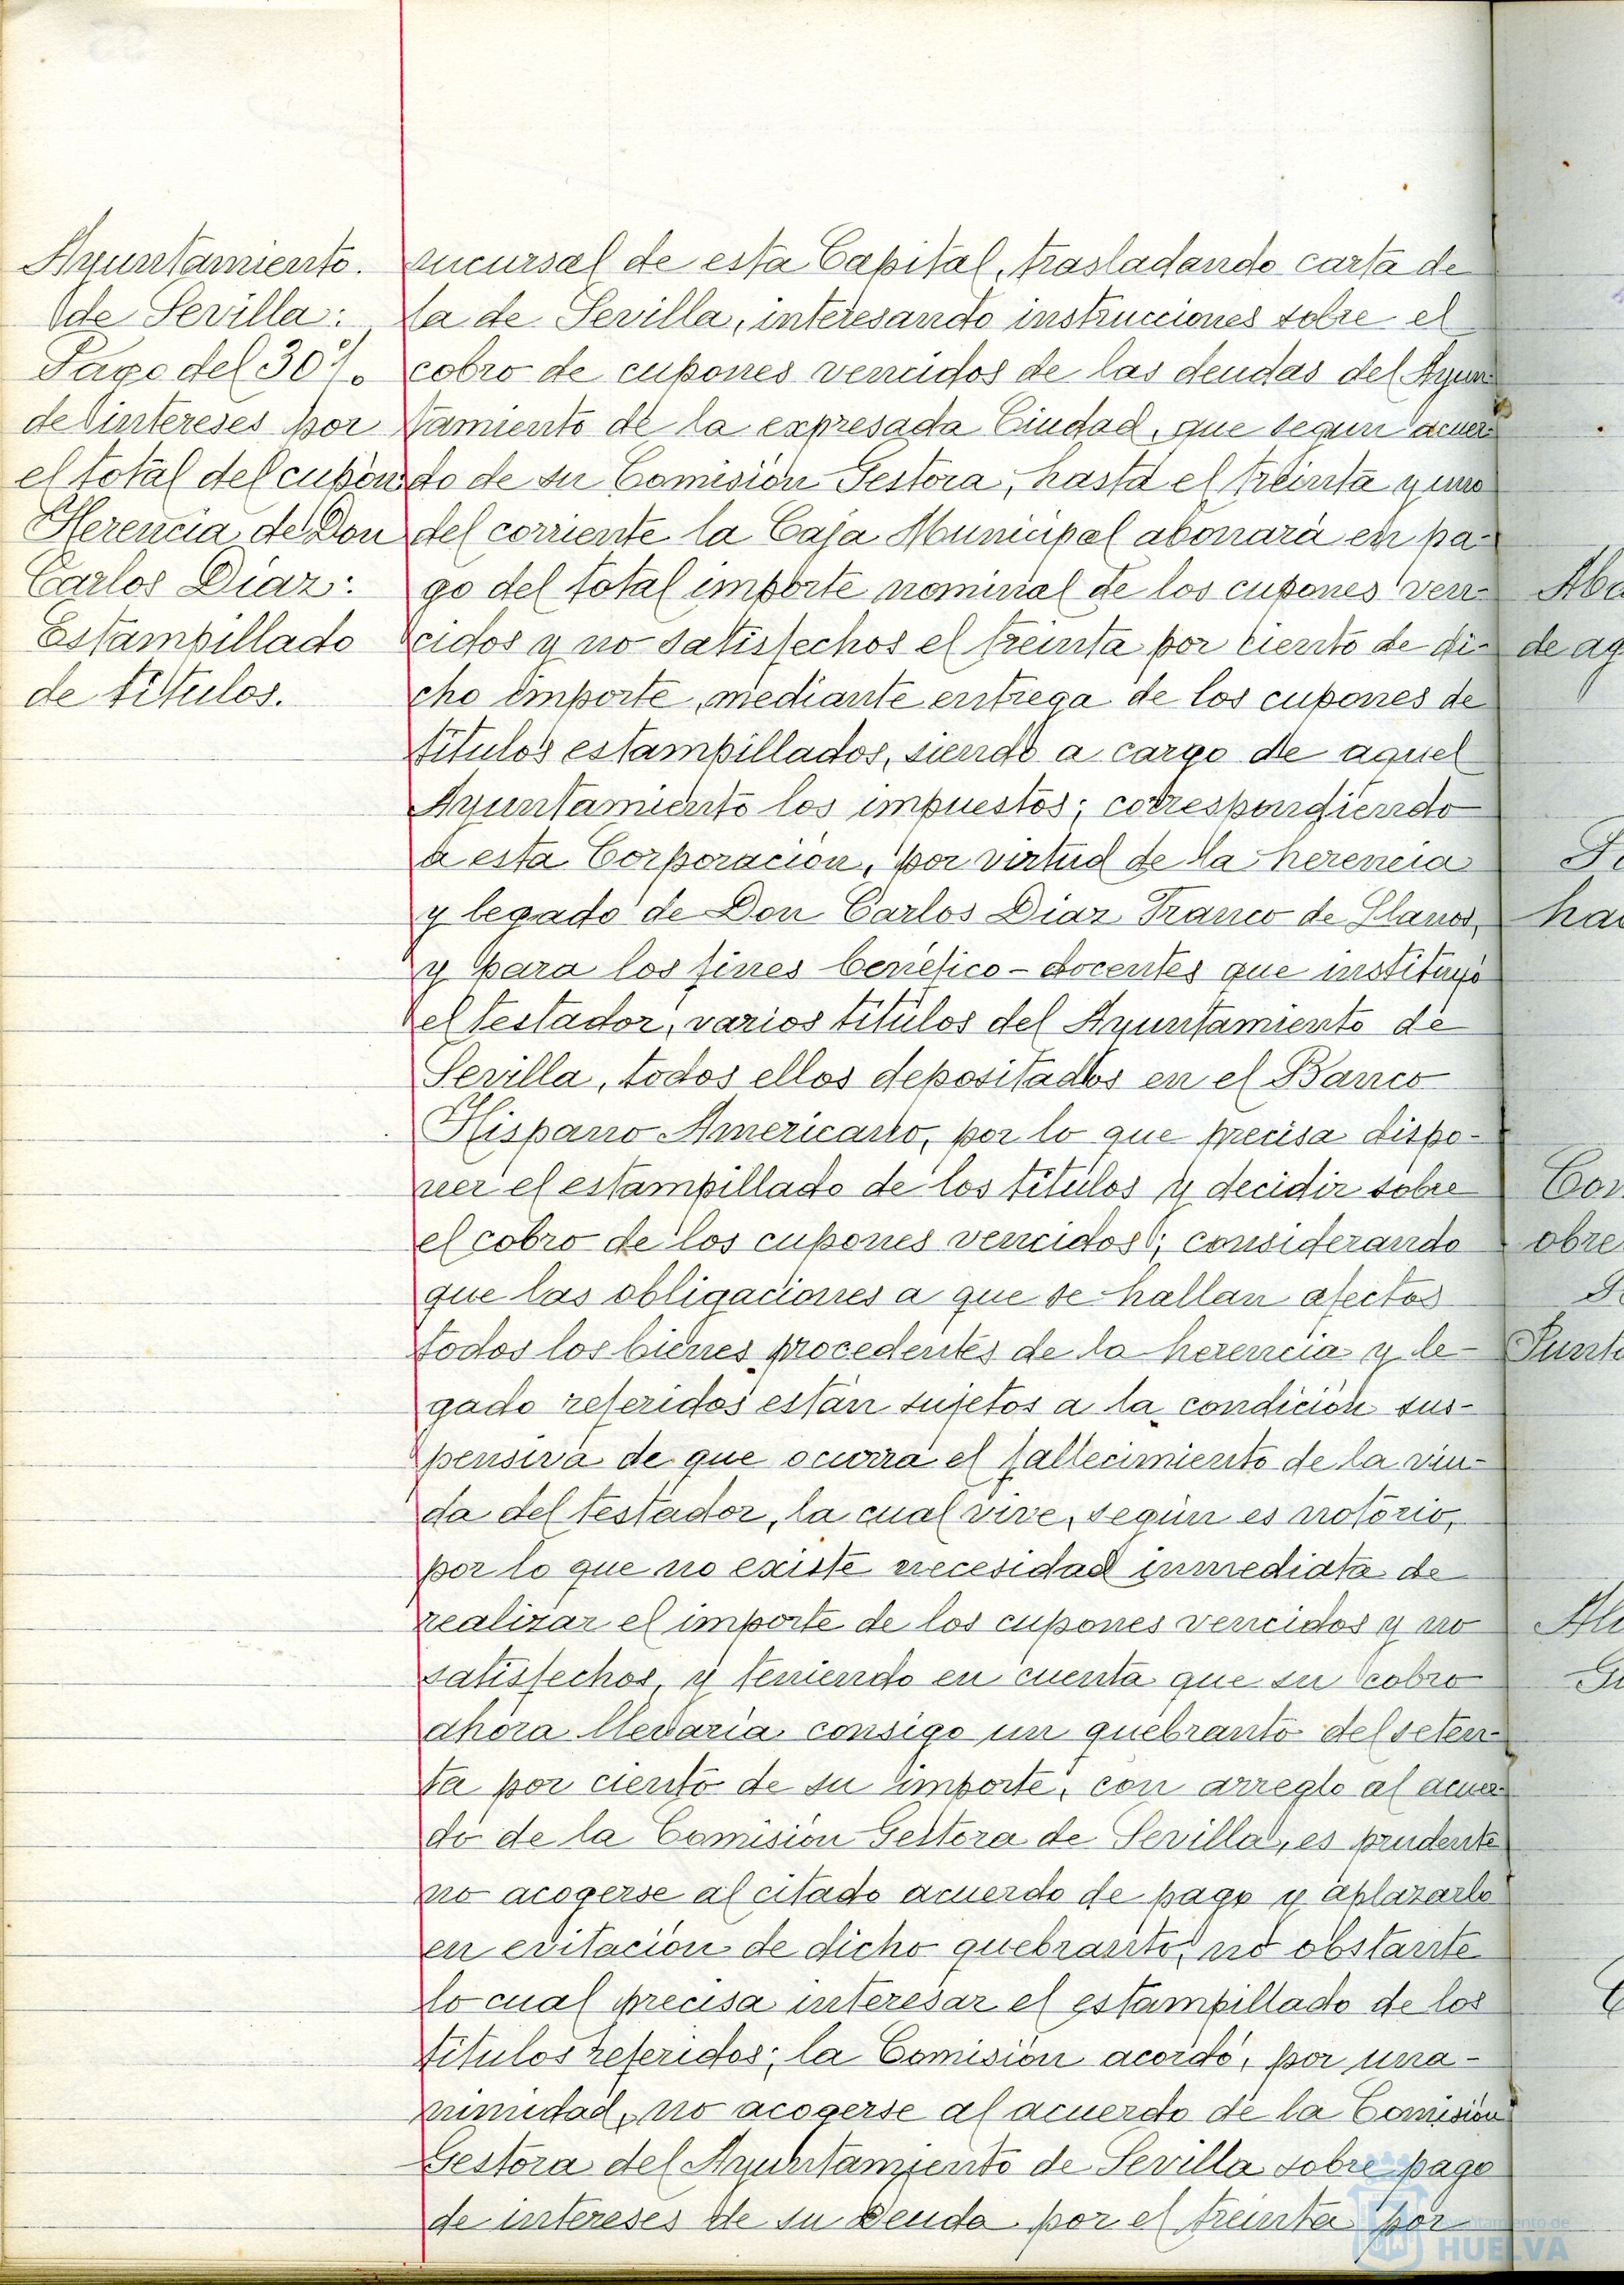 Ayuntamiento.
de Sevilla:
Pago del 30%
de intereses por
el total del cupón
Herencia de Don
Carlos Díaz:
Estampillado
de títulos.
sucursal de esta Capital, trasladando carta de
la de Sevilla, interesando instrucciones sobre el
cobro de cupones vencidos de las deudas del Ayun
tamiento de la expresada Ciudad, que según acuer
do de su Comisión Gestora, hasta el treinta y uno
del corriente la Caja Municipal abonará en pa-
go del total importe nominal de los cupones ven-
cidos y no satisfechos el treinta por ciento de di-
cho importe, mediante entrega de los cupones de
títulos estampillados, siendo a cargo de aquel
Ayuntamiento los impuestos; correspondiendo
a esta Corporación, por virtud de la herencia
y legado de Don Carlos Díaz Franco de Llanos,
y para los fines benéfico-docentes que instituyó
el testador, varios títulos del Ayuntamiento de
Sevilla, todos ellos depositados en el Banco
Hispano Americano, por lo que precisa dispo-
ner el estampillado de los títulos y decidir sobre
el cobro de los cupones vencidos; considerando
que las obligaciones a que se hallan afectos
todos los bienes procedentes de la herencia y le-
gado referidos están sujetos a la condición sus-
pensiva de que ocurra el fallecimiento de la viu-
da del testador, la cual vive, según es notorio,
por lo que no existe necesidad inmediata de
realizar el importe de los cupones vencidos y no
satisfechos, y teniendo en cuenta que su cobro
ahora llevaría consigo un quebranto del seten-
ta por ciento de su importe, con arreglo al acuer-
do de la Comisión Gestora de Sevilla, es prudente
no acogerse al citado acuerdo de pago y aplazarlo
en evitación de dicho quebranto, no obstante
lo cual precisa interesar el estampillado de los
títulos referidos; la Comisión acordó, por una-
nimidad, no acogerse al acuerdo de la Comisión
Gestora del Ayuntamiento de Sevilla sobre pago
de intereses de su Deuda por el treinta por
de ag
ha
Con
obre
Ayuntamiento de
HUELVA